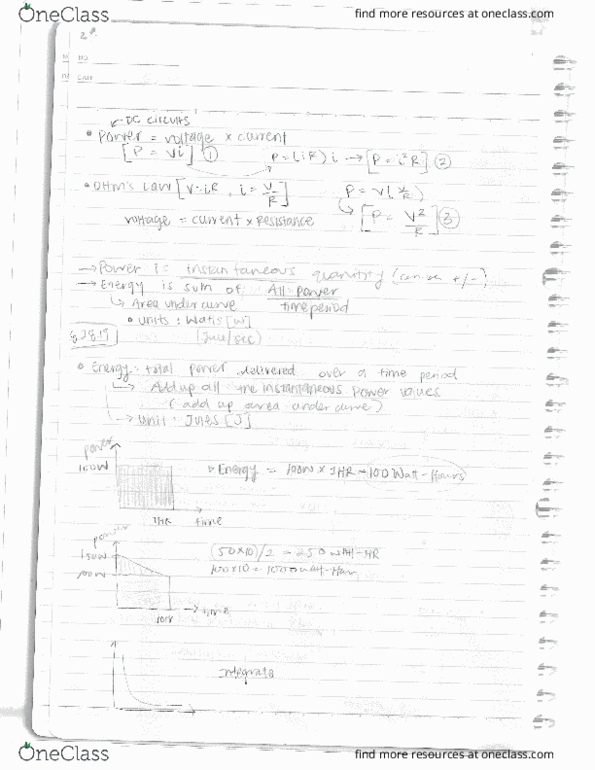 OneClass
find more resources at oneclass.com
DC CIRCUITS
• Power = voltage x current
[P = Vi] ①
P = (iR) i → [P = i²R] ②
• OHM's Law [V=iR, i = V/R]
P = V(V/R)
voltage = current x Resistance
[P = V²/R] ③
→ Power is instantaneous quantity (can be +/-)
→ Energy is sum of All Power
↳ Area under curve time period
• units: Watts [W]
82819
(Jule/sec)
• Energy: total power delivered over a time period
↳ Add up all the instantaneous power values
(add up area under curve)
→ Unit: Jules [J]
power
100W
▹ Energy = 100W x 1HR = 100 Watt-Hours
1HR time
power
150W
(50x10)/2 = 250 watt-HR
100W
100x10 = 1000 watt-Hour
10hr time
integrate
OneClass
find more resources at oneclass.com